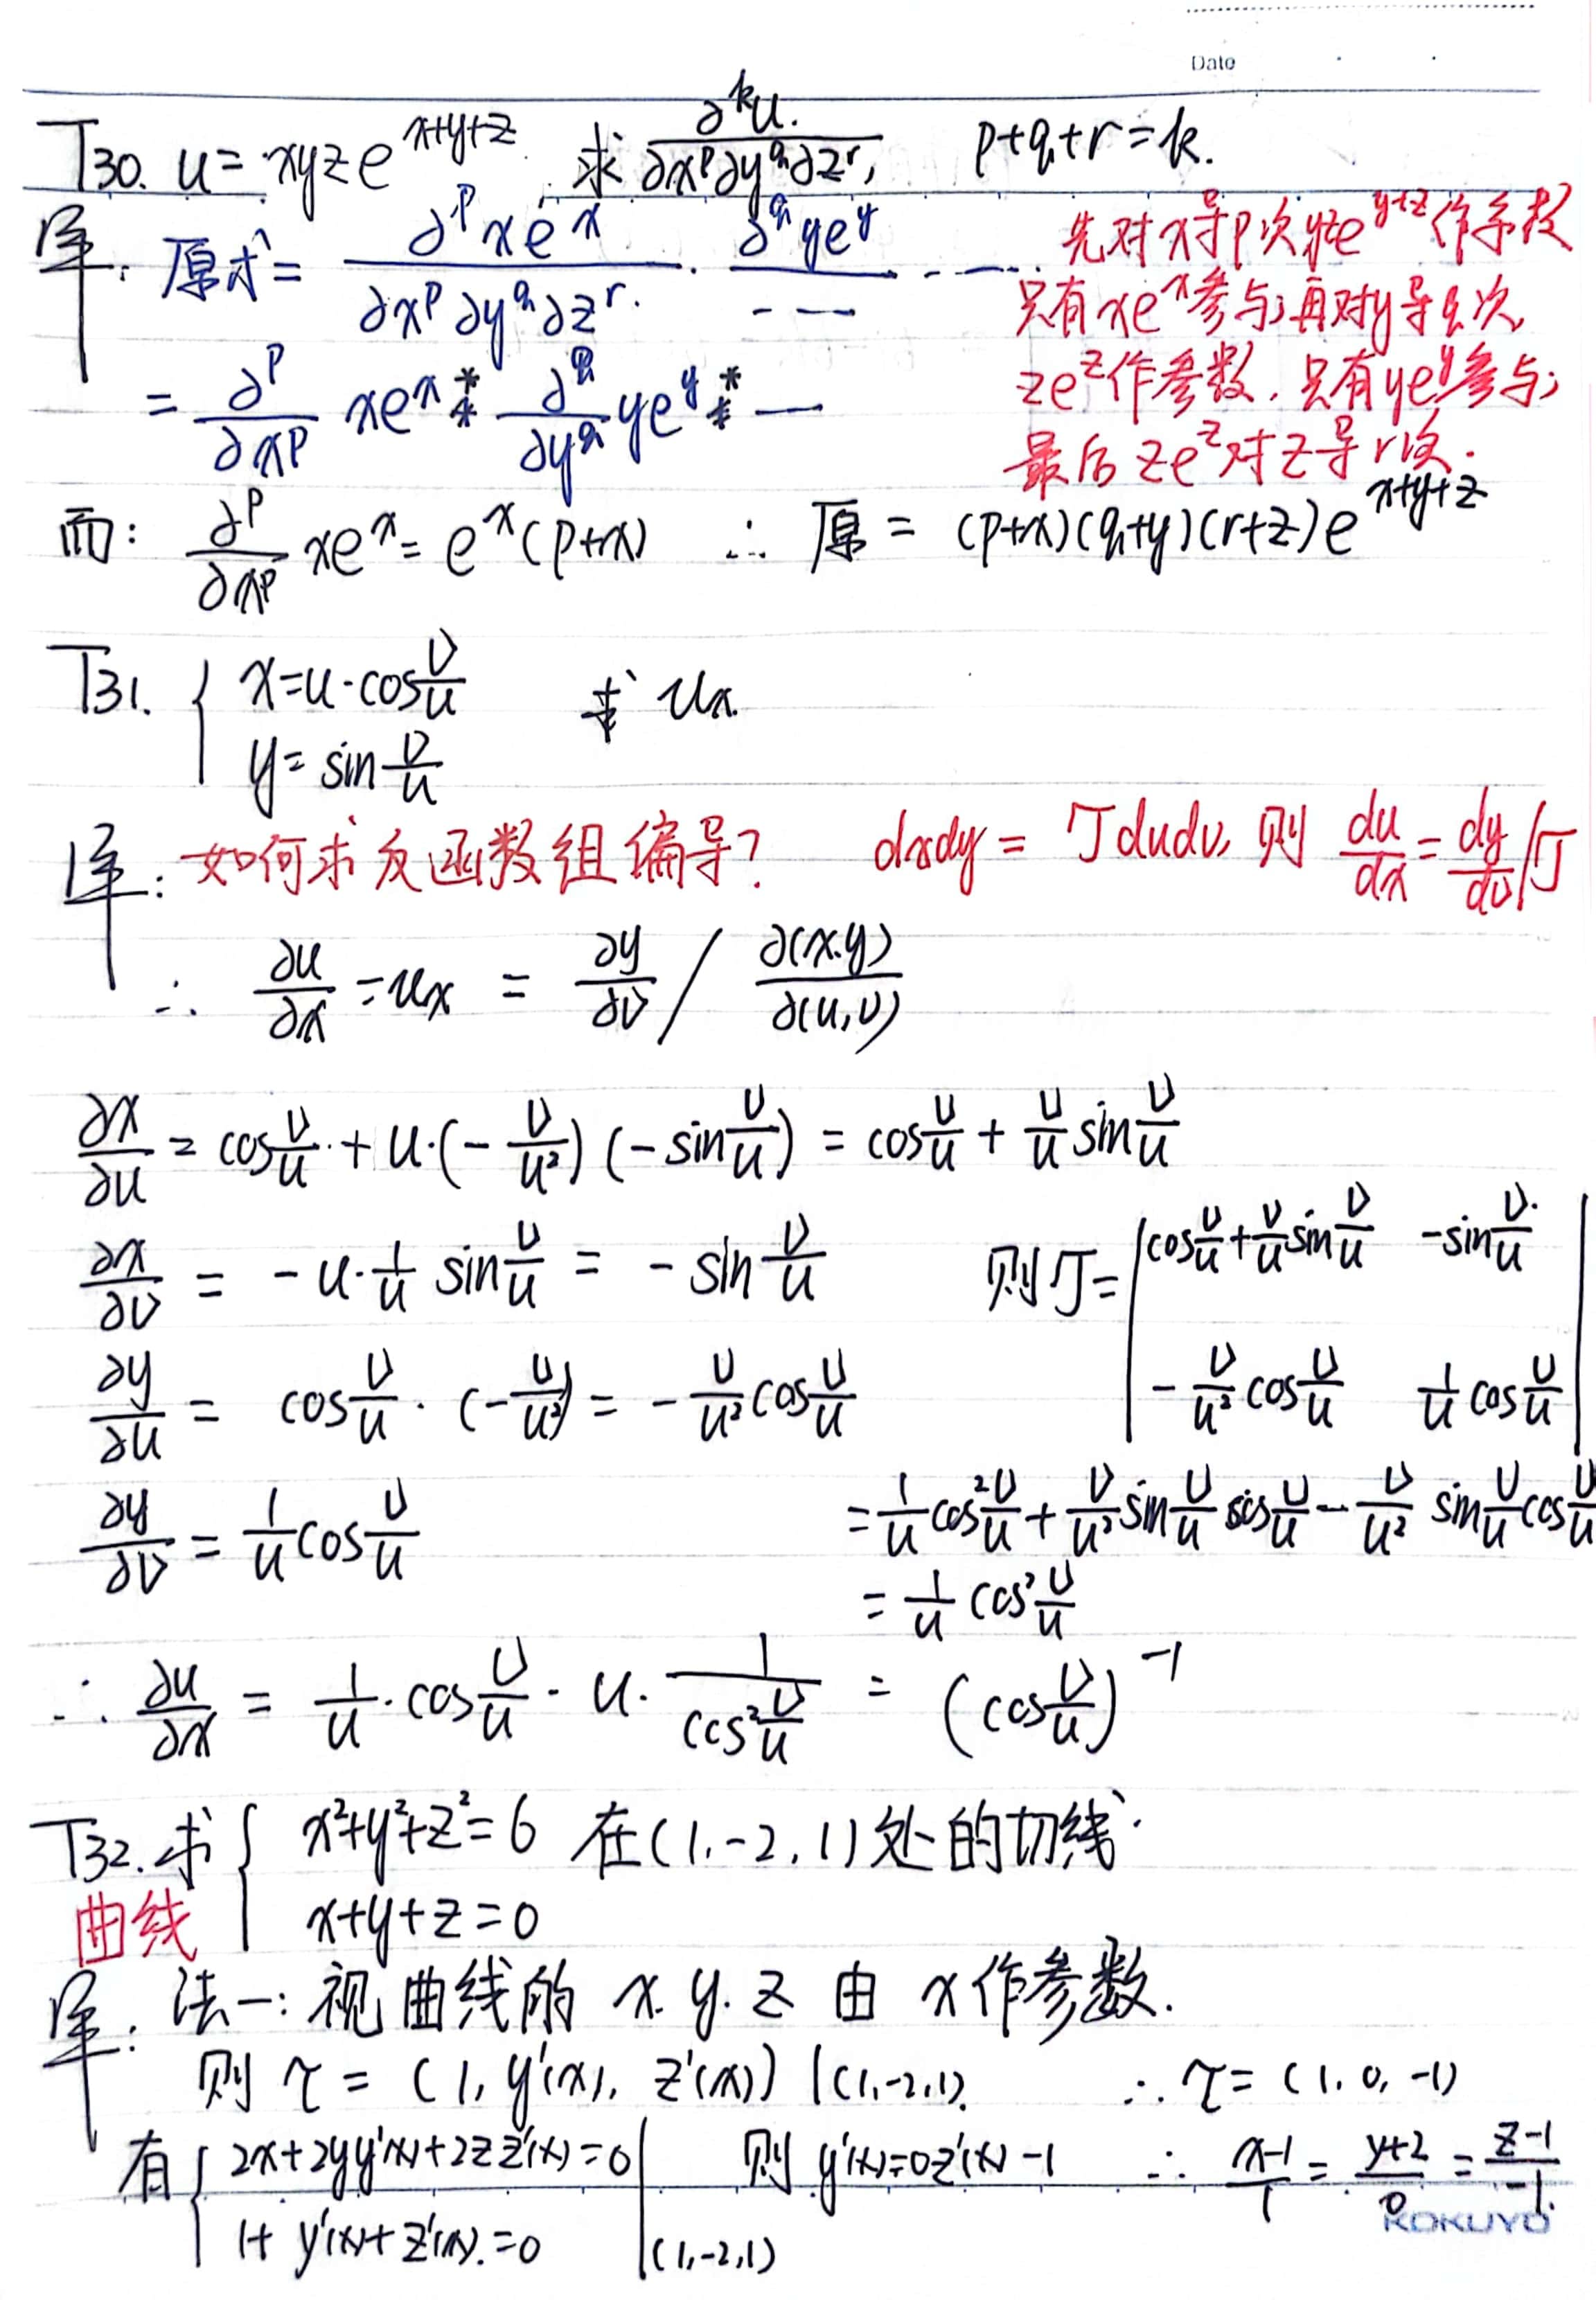 Date
T30. u = xyz e^{x+y+z}. 求 ∂^k u / ∂x^p ∂y^q ∂z^r, p+q+r=k.
解: 原式 = ∂^p xe^x / ∂x^p ∂y^q ∂z^r · ∂^q ye^y / --- · ----
先对x导p次 yze^{y+z}作系数
只有xe^x参与; 再对y导q次,
ze^z作参数, 只有ye^y参与;
最后 ze^z对z导r次.
= ∂^p/∂x^p xe^x * ∂^q/∂y^q ye^y * —
而: ∂^p/∂x^p xe^x = e^x(p+x) ∴ 原 = (p+x)(q+y)(r+z)e^{x+y+z}
T31. { x=u·cos v/u 求 u_x.
y= sin v/u
解: 如何求反函数组偏导? dxdy = J dudv, 则 du/dx = dy/dv / J
∴ ∂u/∂x = u_x = ∂y/∂v / ∂(x.y)/∂(u,v)
∂x/∂u = cos v/u + u·(- v/u²)(-sin v/u) = cos v/u + v/u sin v/u
∂x/∂v = -u· 1/u sin v/u = - sin v/u
则 J = | cos v/u + v/u sin v/u -sin v/u |
| - v/u² cos v/u 1/u cos v/u |
∂y/∂u = cos v/u · (- v/u²) = - v/u² cos v/u
∂y/∂v = 1/u cos v/u
= 1/u cos² v/u + v/u² sin v/u cos v/u - v/u² sin v/u cos v/u
= 1/u cos² v/u
∴ ∂u/∂x = 1/u · cos v/u · u · 1/cos² v/u = (cos v/u)^{-1}
T32. 求 { x²+y²+z²=6 在(1,-2,1)处的切线.
曲线 x+y+z=0
解: 法一: 视曲线的 x.y.z 由 x作参数.
则 τ = (1, y'(x), z'(x)) |(1,-2,1). ∴ τ = (1, 0, -1)
有 { 2x+2yy'(x)+2zz'(x)=0 | 则 y'(x)=0 z'(x) -1 ∴ x-1/1 = y+2/0 = z-1/-1.
1+ y'(x)+z'(x).=0 |(1,-2,1)
KOKUYO